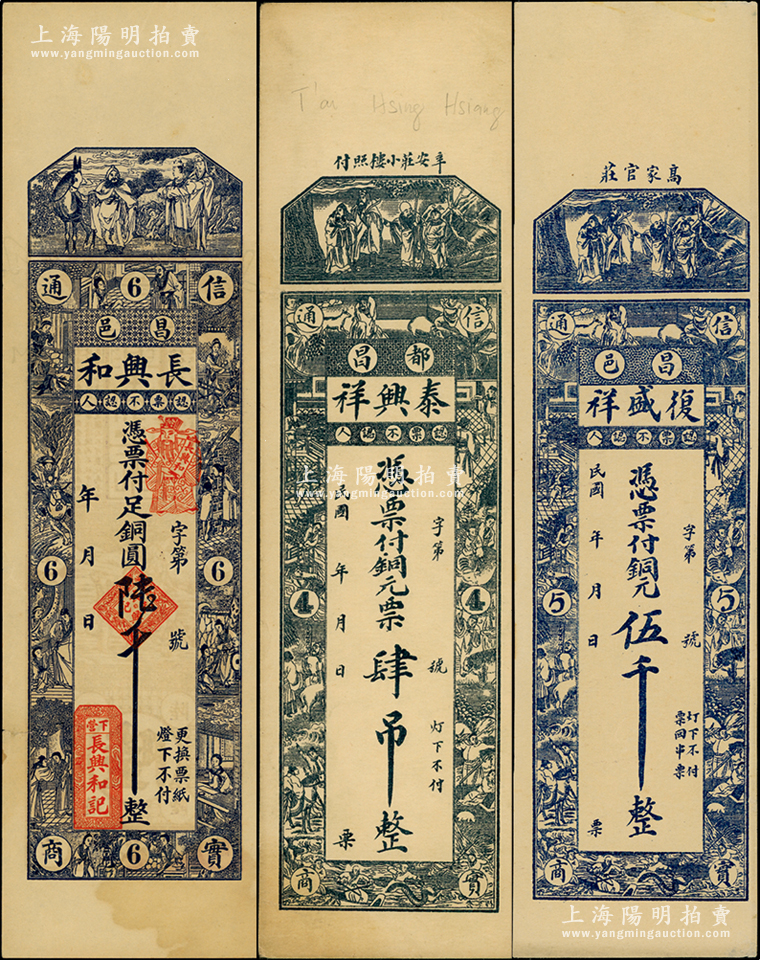 上海陽明拍賣
www.yangmingauction.com
信 6 通
昌邑
長興和
認票不認人
憑票付足銅圓陸千整
字第 號
年 月 日
更換票紙
燈下不付
6 6
下營
長興和記
實 6 商
T'ai Hsing Hsiang
辛安莊小樓照付
信 通
都昌
泰興祥
認票不認人
憑票付銅元票肆吊整
字第 號
灯下不付
民國 年 月 日
票
4 4
實 商
上海陽明拍賣
www.yangmingauction.com
高家官莊
信 通
昌邑
復盛祥
認票不認人
憑票付銅元伍千整
字第 號
灯下不付
票回串票
民國 年 月 日
票
5 5
實 商
上海陽明拍賣
www.yangmingauction.com